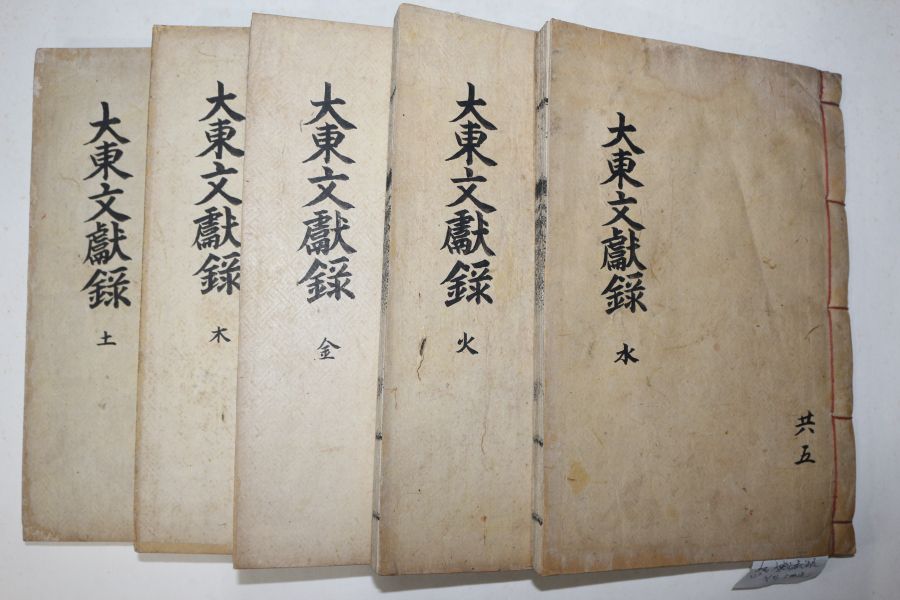 大東文獻錄
水
共五
大東文獻錄
火
大東文獻錄
金
大東文獻錄
木
大東文獻錄
土